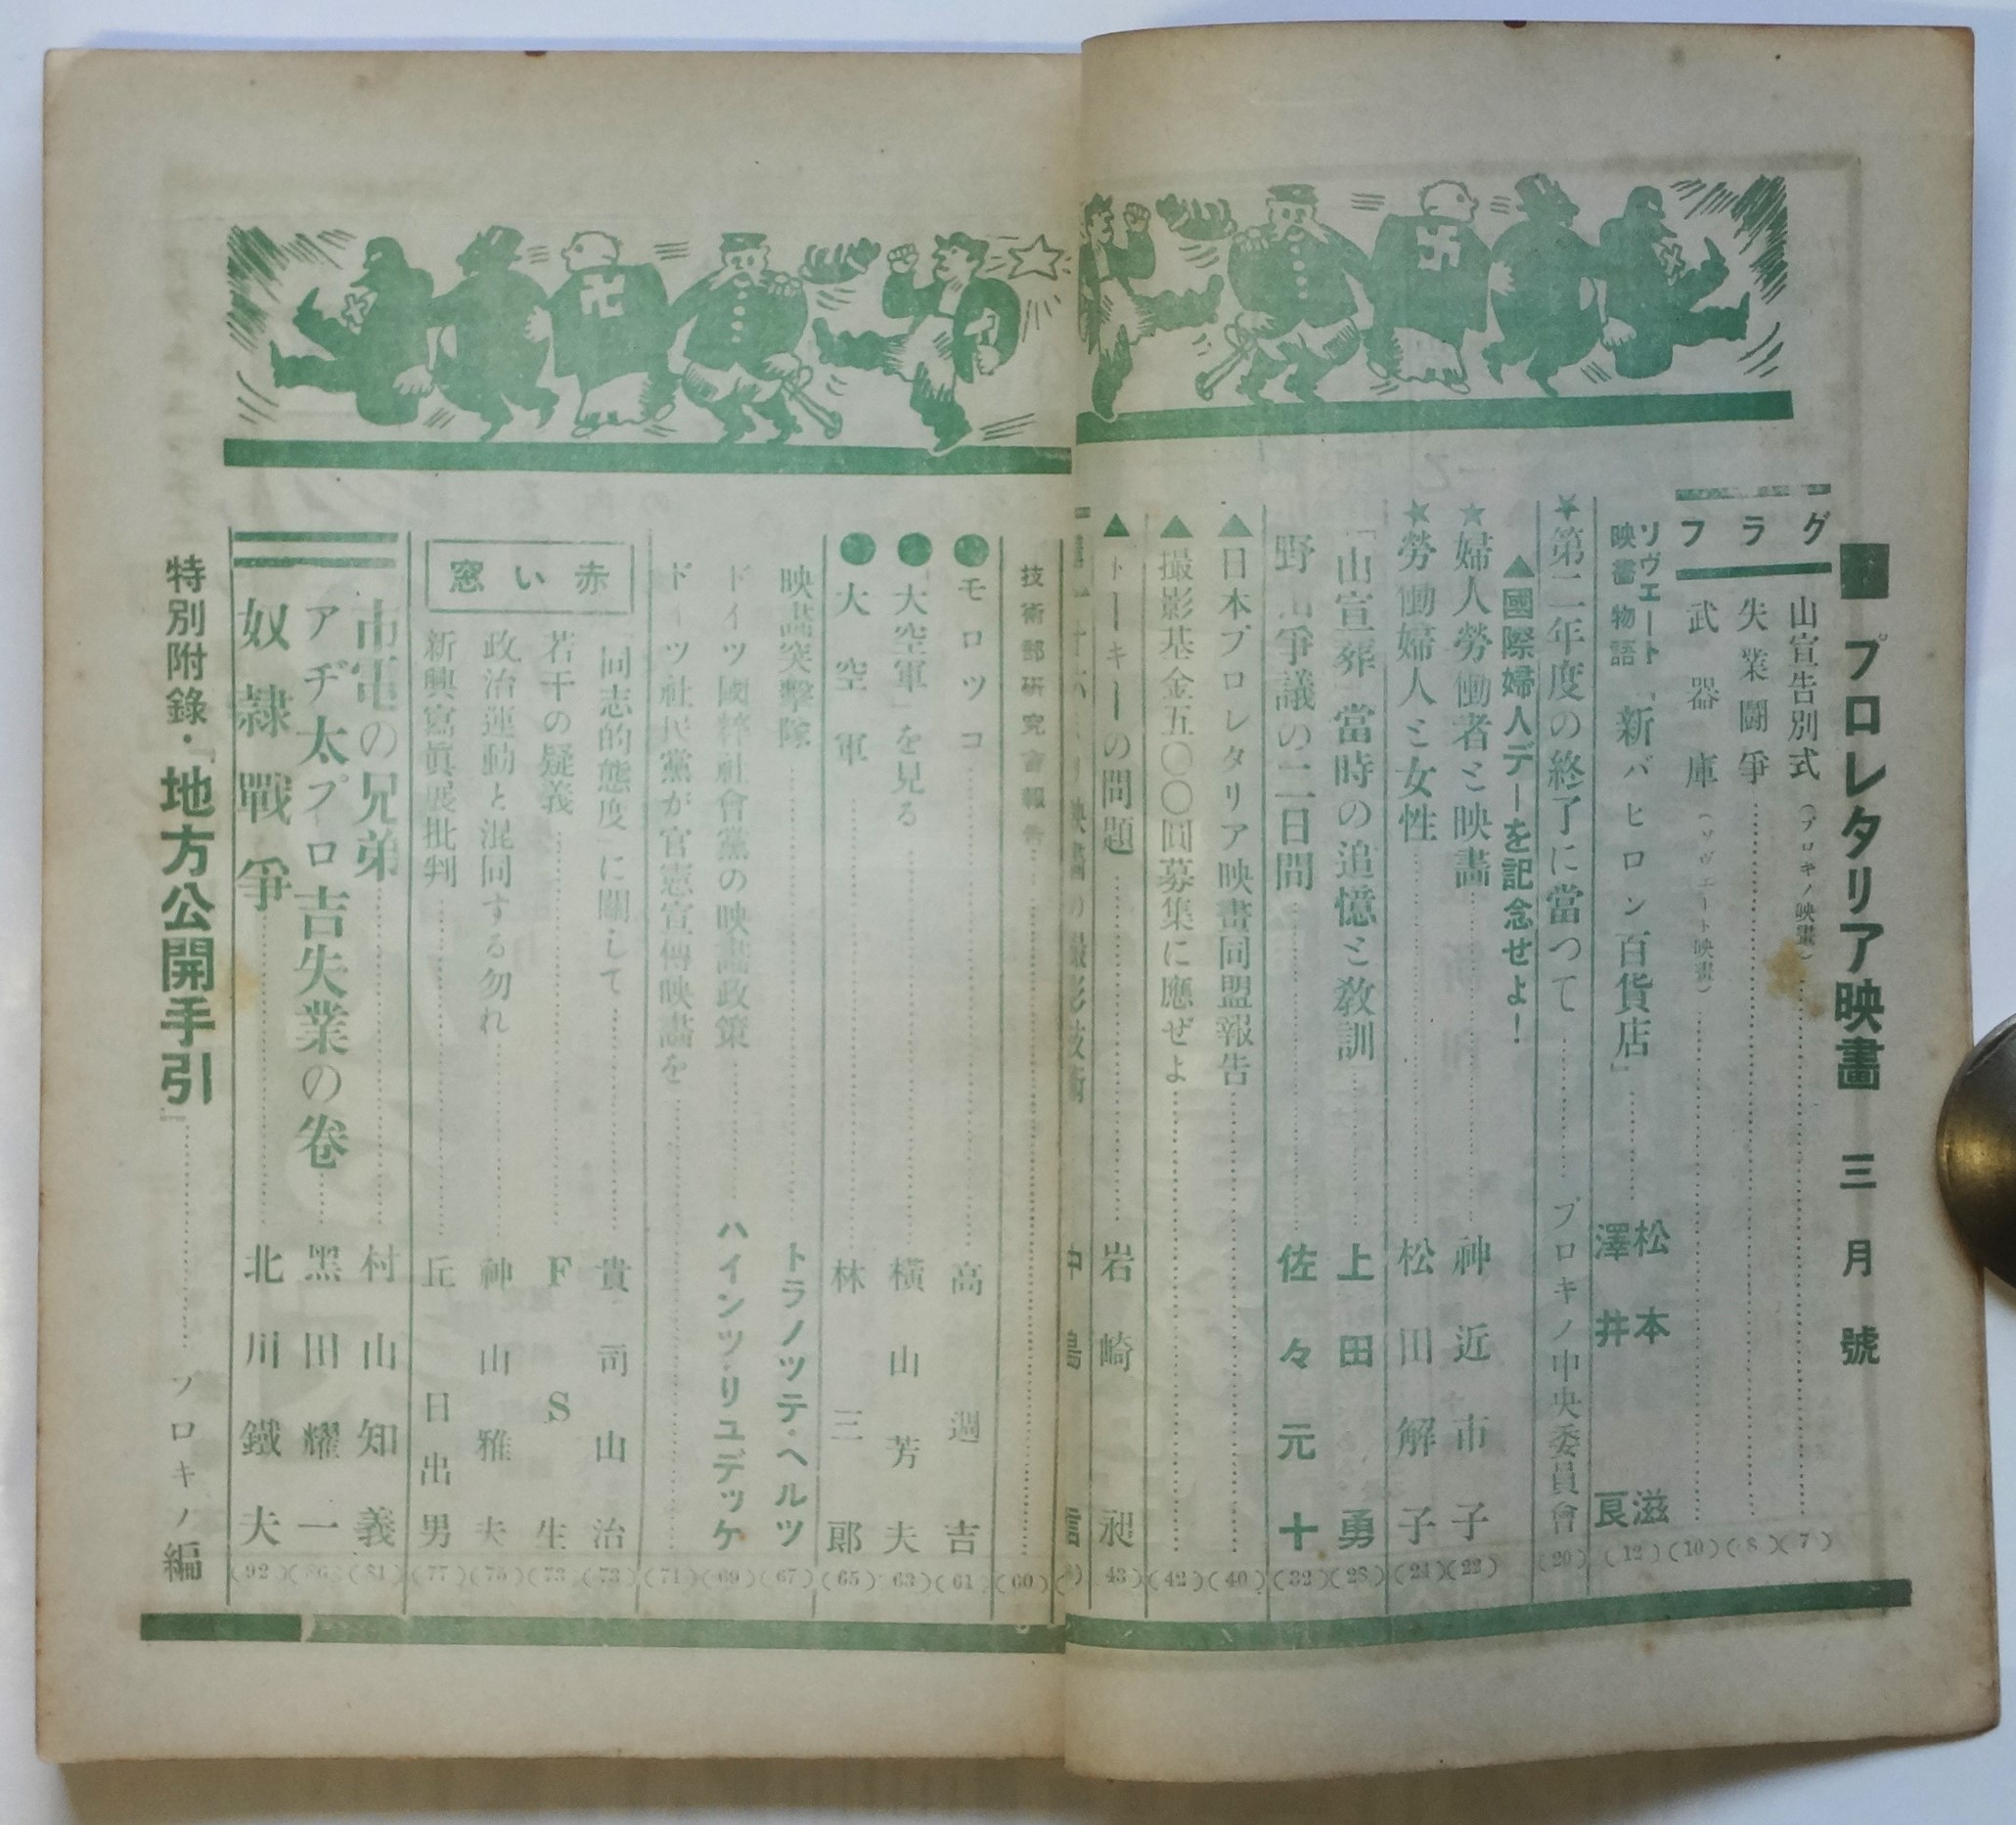 プロレタリア映畫 三月號
グラフ
山宣告別式(プロキノ映畫)(7)
失業鬪爭(8)
武器庫(ソヴエート映畫)(10)
ソヴエート映畫物語「新バビロン百貨店」 松本滋 澤井良(12)
★第二年度の終了に當つて プロキノ中央委員會(20)
▲國際婦人デーを記念せよ!
★婦人勞働者と映畫 神近市子(22)
★勞働婦人と女性 松田解子(24)
「山宣葬」當時の追憶と教訓 上田勇(28)
野田爭議の二日間 佐々元十(32)
▲日本プロレタリア映畫同盟報告(40)
▲撮影基金五〇〇圓募集に應ぜよ(42)
▲トーキーの問題 岩崎昶(43)
中島信
技術部研究會報告(60)
●モロツコ 高週吉(61)
●「大空軍」を見る 横山芳夫(63)
●大空軍 林三郎(65)
映畫突擊隊 トラノツテ・ヘルツ(67)
ドイツ國粹社會黨の映畫政策 ハインツ・リユデツケ(69)
ドイツ社民黨が官憲宣傳映畫を(71)
赤い窓
「同志的態度」に關して 貴司山治(73)
若干の疑義 FS生(73)
政治運動と混同する勿れ 神山雅夫(75)
新興寫眞展批判 丘日出男(77)
市電の兄弟 村山知義(81)
アヂ太プロ吉失業の卷 黑田耀一(86)
奴隸戰爭 北川鐵夫(92)
特別附錄・「地方公開手引」 プロキノ編